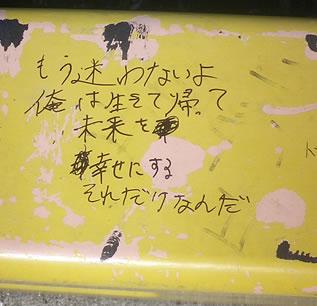 もう迷わないよ
俺は生きて帰って
未来を
幸せにする
それだけなんだ